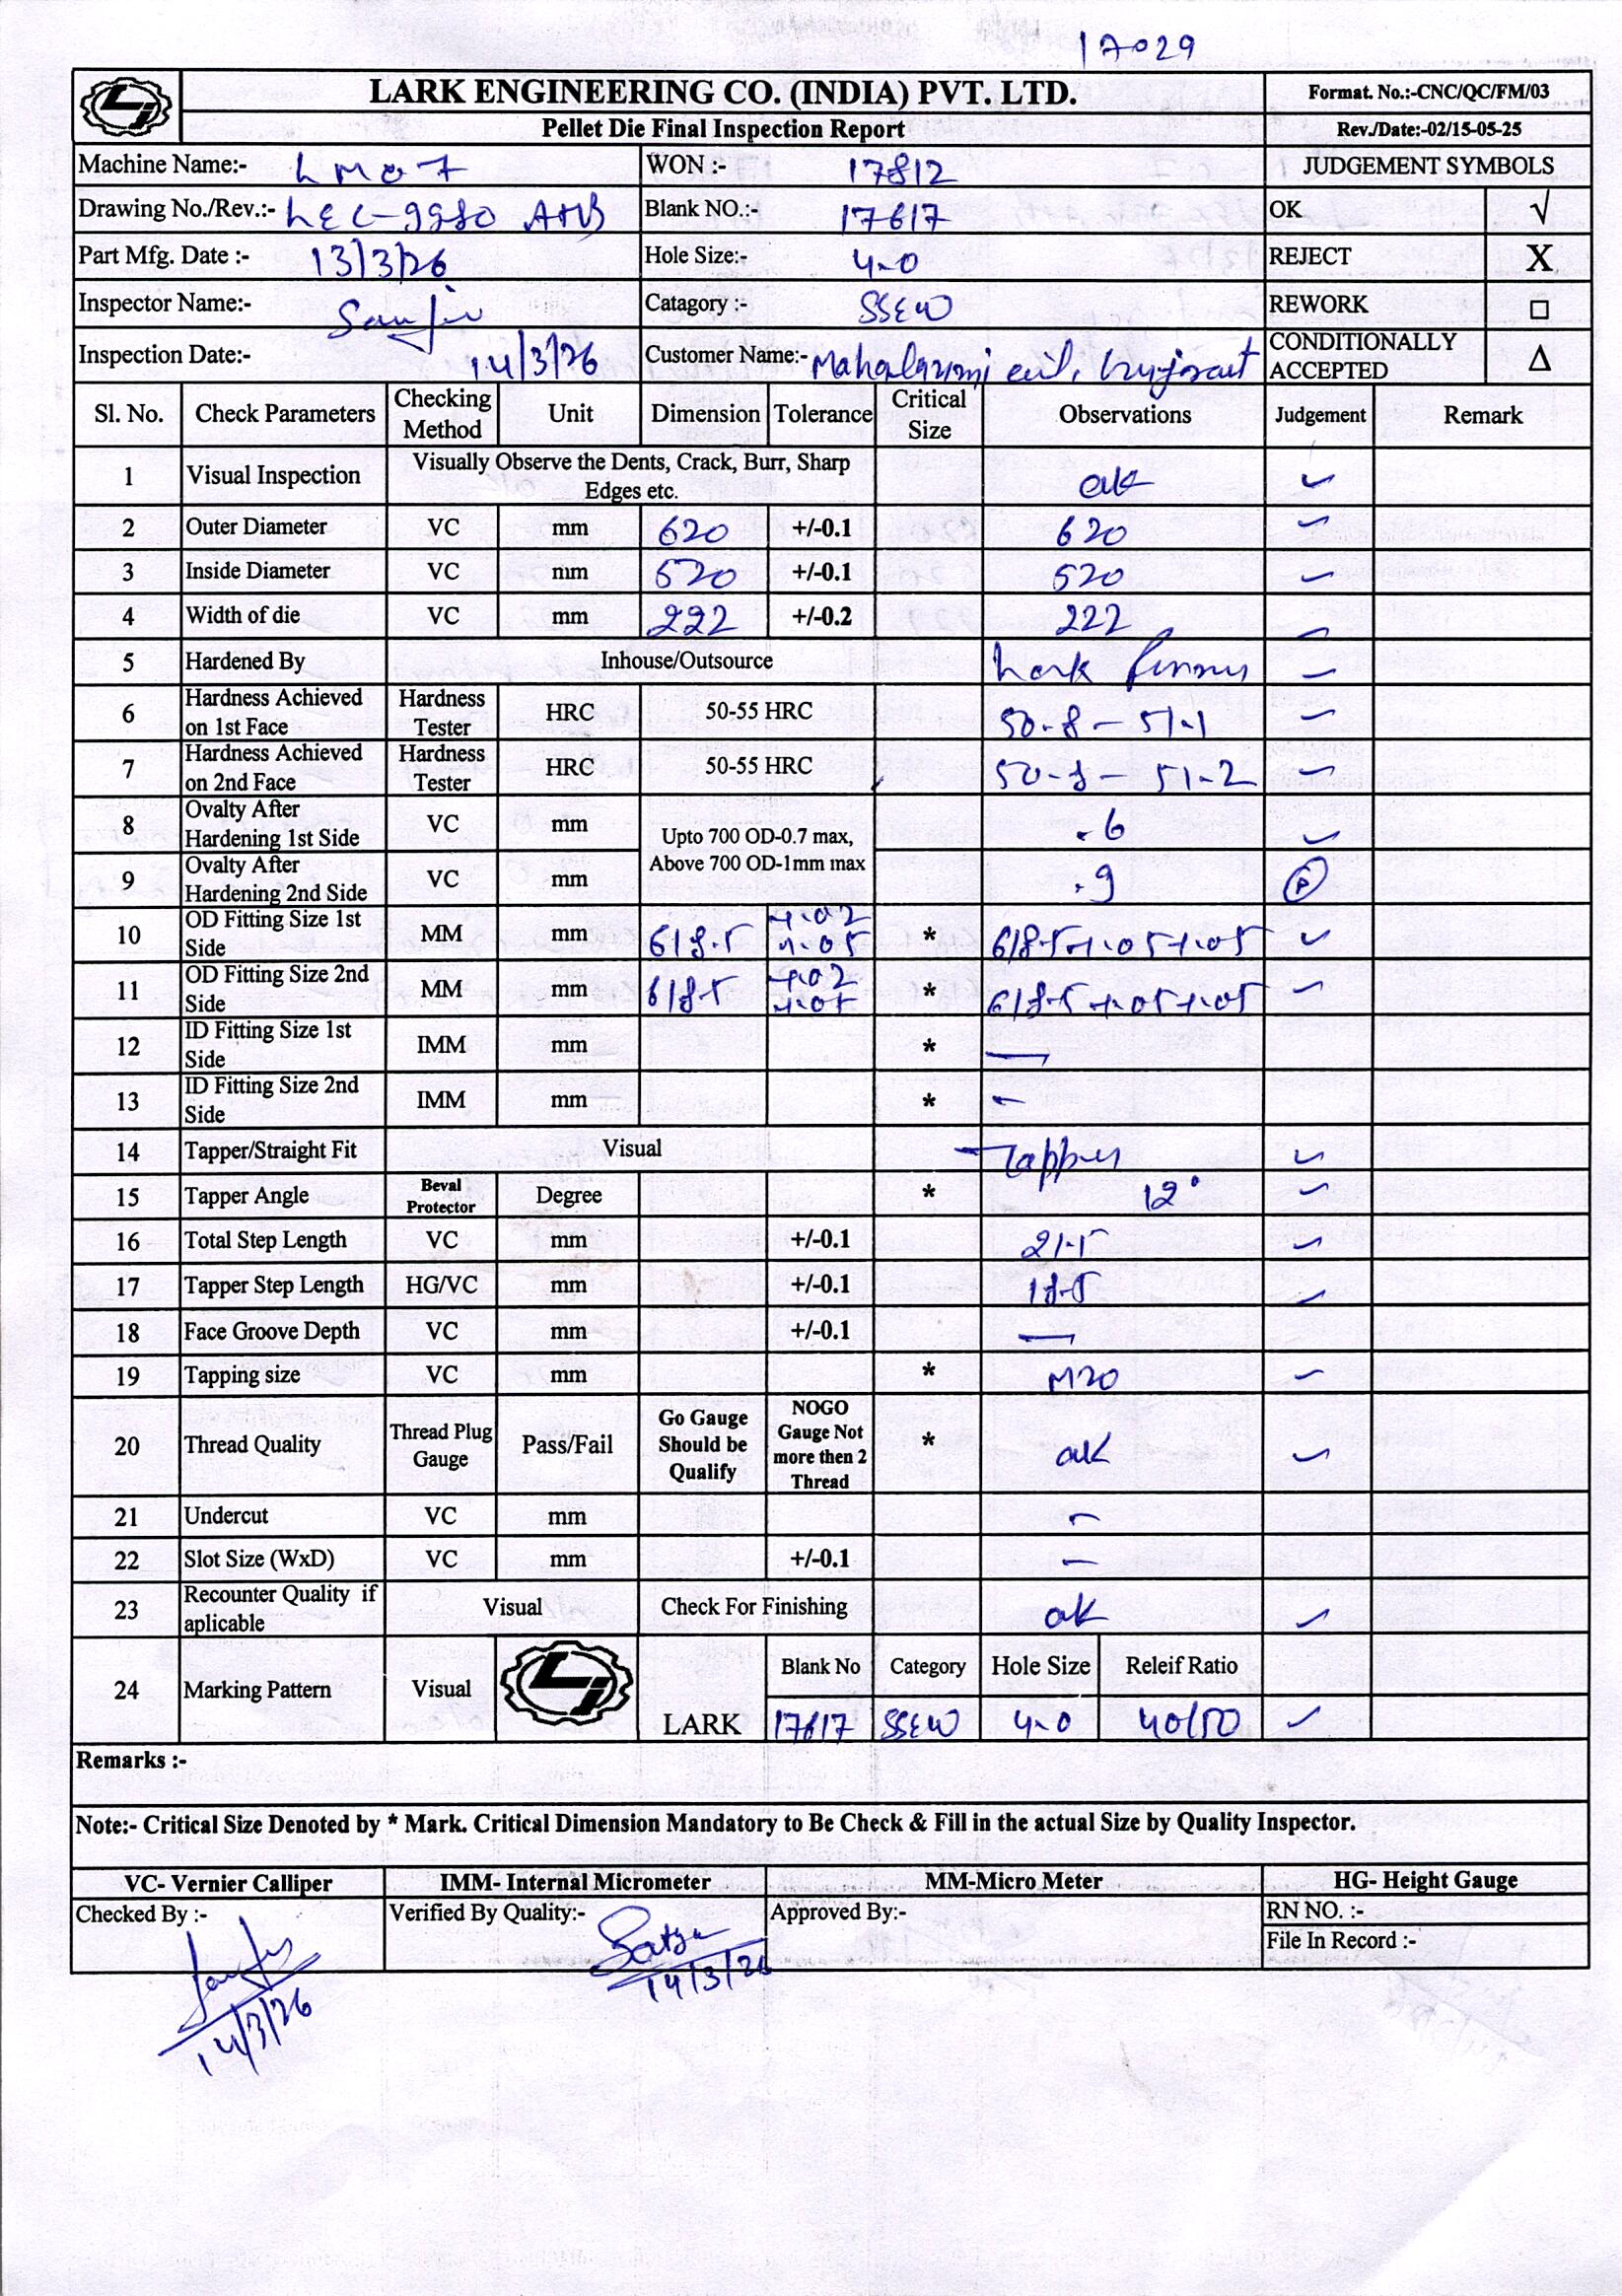 17029
LARK ENGINEERING CO. (INDIA) PVT. LTD.
Format. No.:-CNC/QC/FM/03
Pellet Die Final Inspection Report
Rev./Date:-02/15-05-25
Machine Name:- LM07 WON :- 17812 JUDGEMENT SYMBOLS
Drawing No./Rev.:- LEC-9980 Blank NO.:- 17617 OK √
Part Mfg. Date :- 13/3/26 Hole Size:- 4.0 REJECT X
Inspector Name:- Catagory :- SSEW REWORK □
Inspection Date:- 14/3/26 Customer Name:- CONDITIONALLY ACCEPTED Δ
Sl. No. Check Parameters Checking Method Unit Dimension Tolerance Critical Size Observations Judgement Remark
1 Visual Inspection Visually Observe the Dents, Crack, Burr, Sharp Edges etc. ok ✓
2 Outer Diameter VC mm 620 +/-0.1 620 ✓
3 Inside Diameter VC mm 520 +/-0.1 520 ✓
4 Width of die VC mm 222 +/-0.2 222 ✓
5 Hardened By Inhouse/Outsource Lark ✓
6 Hardness Achieved on 1st Face Hardness Tester HRC 50-55 HRC 50.8 - 51.1 ✓
7 Hardness Achieved on 2nd Face Hardness Tester HRC 50-55 HRC 50.8 - 51.2 ✓
8 Ovalty After Hardening 1st Side VC mm Upto 700 OD-0.7 max, Above 700 OD-1mm max .6 ✓
9 Ovalty After Hardening 2nd Side VC mm .9
10 OD Fitting Size 1st Side MM mm 618.5 +.02 +.05 * 618.5 +.05 +.05 ✓
11 OD Fitting Size 2nd Side MM mm 618.5 +.02 +.05 * 618.5 +.05 +.05 ✓
12 ID Fitting Size 1st Side IMM mm * —
13 ID Fitting Size 2nd Side IMM mm * —
14 Tapper/Straight Fit Visual Tapper ✓
15 Tapper Angle Beval Protector Degree * 12° ✓
16 Total Step Length VC mm +/-0.1 21.5 ✓
17 Tapper Step Length HG/VC mm +/-0.1 18.5 ✓
18 Face Groove Depth VC mm +/-0.1 —
19 Tapping size VC mm * M20 ✓
20 Thread Quality Thread Plug Gauge Pass/Fail Go Gauge Should be Qualify NOGO Gauge Not more then 2 Thread * ok ✓
21 Undercut VC mm —
22 Slot Size (WxD) VC mm +/-0.1 —
23 Recounter Quality if aplicable Visual Check For Finishing ok ✓
24 Marking Pattern Visual LARK Blank No Category Hole Size Releif Ratio
17617 SSEW 4.0 40/50 ✓
Remarks :-
Note:- Critical Size Denoted by * Mark. Critical Dimension Mandatory to Be Check & Fill in the actual Size by Quality Inspector.
VC- Vernier Calliper IMM- Internal Micrometer MM-Micro Meter HG- Height Gauge
Checked By :- Verified By Quality:- Approved By:- RN NO. :-
File In Record :-
14/3/26
14/3/26